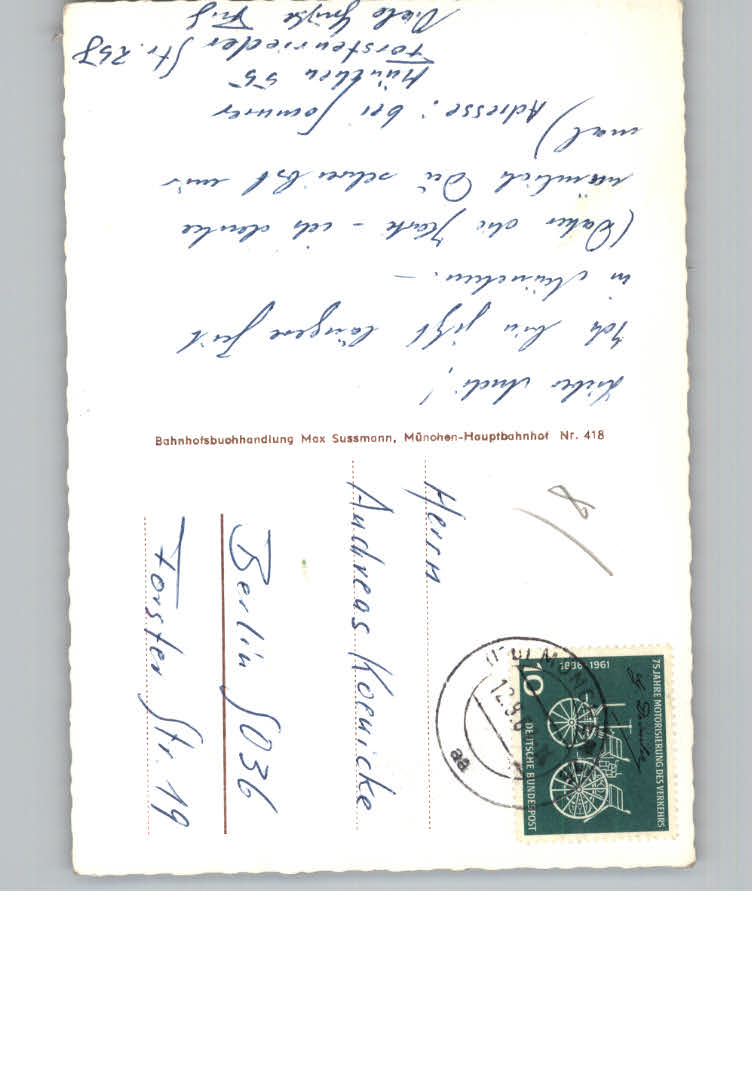 Lieber Andi!
Ich bin jetzt längere Zeit
in München. —
(Daher die Karte - ich denke
nämlich Du schreibst mir
mal)
Adresse: bei Sommer
München 55
Forstenrieder Str. 258
Viele Grüße
Bahnhofsbuchhandlung Max Sussmann, München-Hauptbahnhof Nr. 418
Herrn
Andreas Koenicke
Berlin SO36
Forster Str. 19
8
75 JAHRE MOTORISIERUNG DES VERKEHRS
1886-1961
10
DEUTSCHE BUNDESPOST
aa